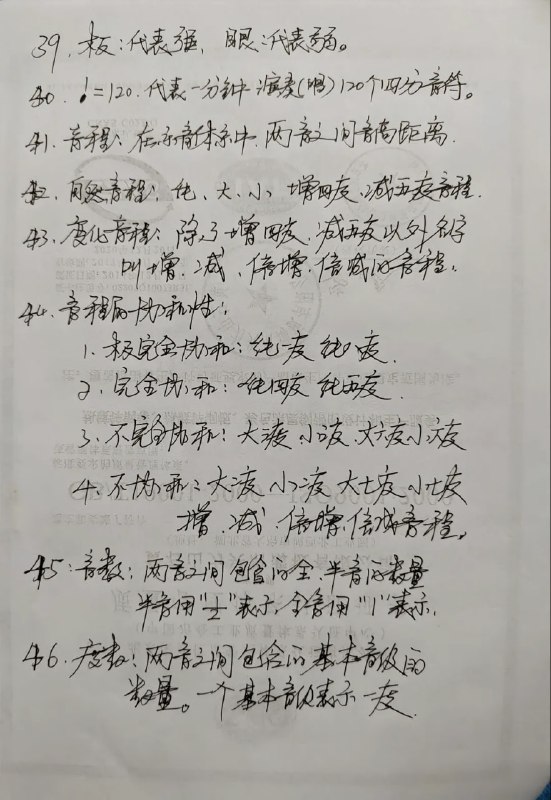 39、板:代表强、眼:代表弱。
40、♩=120.代表一分钟演奏(唱)120个四分音符。
41、音程:在乐音体系中,两音之间音高距离.
42、自然音程:纯、大、小、增四度、减五度音程.
43、变化音程:除了增四度、减五度以外名字
叫增、减、倍增、倍减的音程。
44、音程的协和性:
1、极完全协和:纯一度 纯八度.
2、完全协和:纯四度 纯五度.
3、不完全协和:大三度、小三度、大六度小六度
4、不协和:大二度、小二度 大七度、小七度
增、减、倍增、倍减音程。
45:音数:两音之间包含的全、半音的数量
半音用"½"表示,全音用"1"表示.
46、度数:两音之间包含的基本音级的
数量。一个基本音级表示一度.